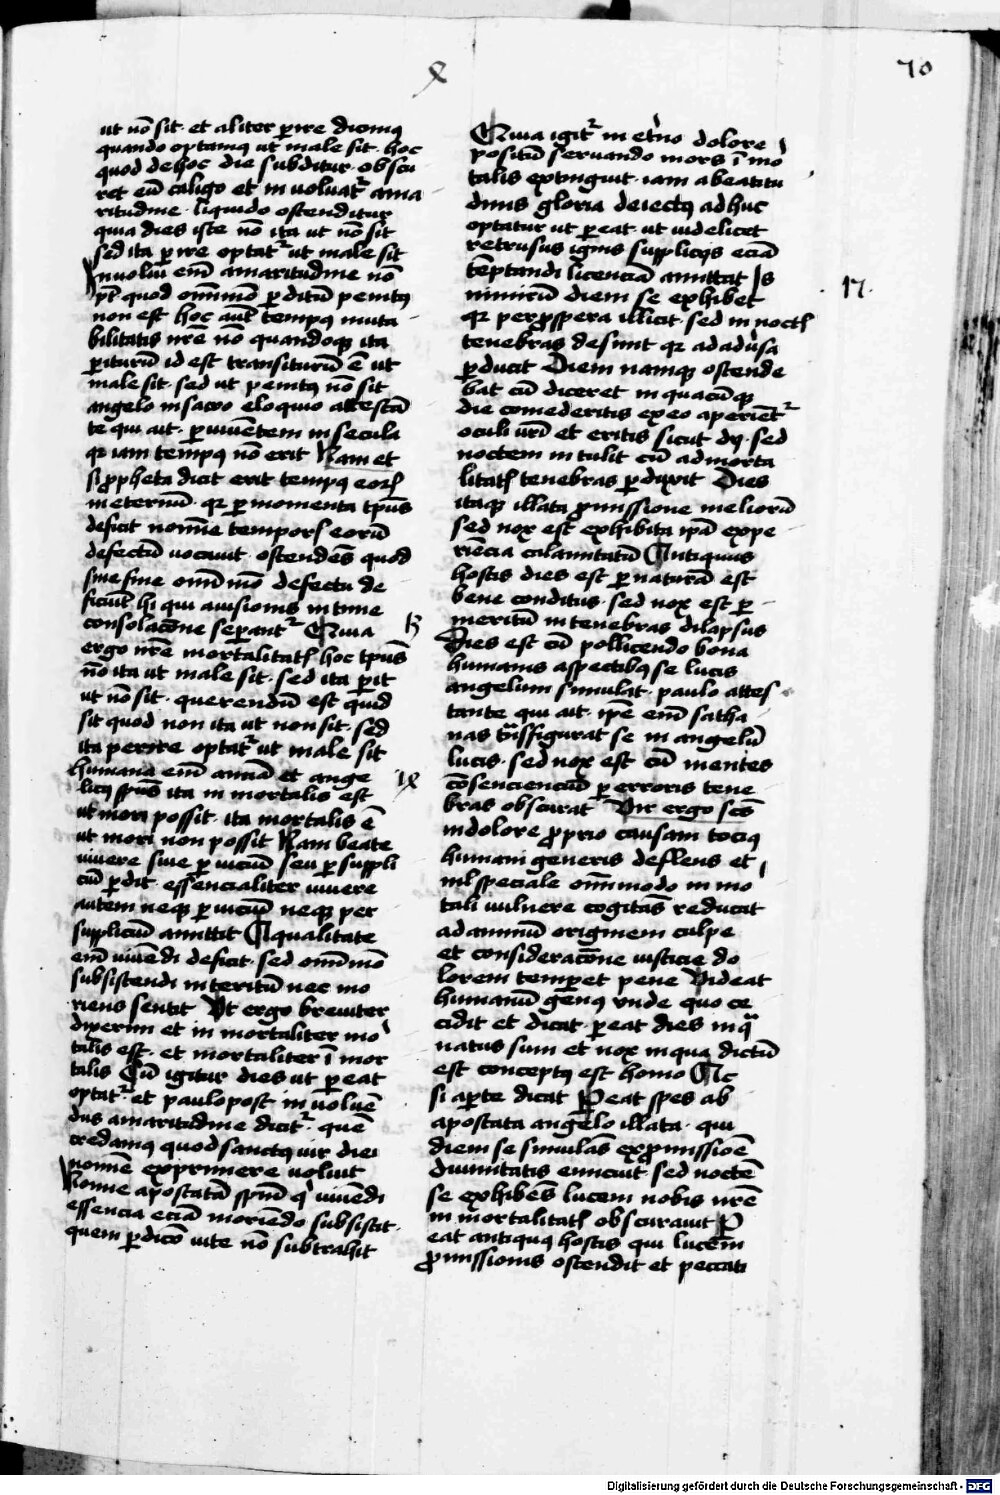 x
70
ut nō sit · et aliter ꝑire dicimꝰ
quando optamꝰ ut male sit · hoc
quod de hoc die subditur · obscu
ret eū caligo et inuoluatᷣ ama
ritudine · liquido ostenditur
quia dies iste nō ita ut nō sit
sed ita ꝑire optatᷣ ut male sit
Inuolui em̄ amaritudine nō
pt̄ quod om̄īo ꝑditū penitꝰ
non est hoc aūt tempꝰ muta
bilitatis nr̄e nō quandoqꝫ ita
ꝑiturū id est transiturū ē ut
male sit · sed ut penitꝰ nō sit
angelo in sacro eloquio attestā
te qui ait · ꝑ uiuētem in secula
qꝛ iam tempꝰ nō erit Nam et
si ꝓpheta dicit erit tempꝰ eoꝝ
in eternū · qꝛ ꝑ momenta tp̄us
deficit nomīe temporꝭ eorū
defectū uocauit · ostendēs quod
sine fine om̄imō defectu de
ficiūt hi qui a uisionis intime
consolacōne seperantᷣ Quia
ergo nr̄e mortalitatꝭ hoc tp̄us
nō ita ut male sit · sed ita ꝑit
ut nō sit · querendū est quid
sit quod non ita ut non sit · sed
ita perire optatᷣ ut male sit
humana em̄ anīa et ange
licꝰ sp̄us ita in mortalis est
ut mori possit · ita mortalis ē
ut mori non possit Nam beate
uiuere siue ꝑ uiciū seu ꝑ suppli
ciū ꝑdit · essencialiter uiuere
autem neqꝫ ꝑ uiciū neqꝫ per
suppliciū amittit A qualitate
em̄ uiuēdi deficit · sed om̄imō
subsistendi interitū nec mo
riens sentit Ut ergo breuiter
dixerim et in mortaliter mor
talis est · et mortaliter ī mor
talis Cū igitur dies ut ꝑeat
optatᷣ · et paulo post inuoluē
dus amaritudine dicitᷣ · quē
credamꝰ quod sanctꝰ uir diei
nomīe exprimere uoluit
Nonne apostatā sp̄m qͥ uiuēdi
essencia eciā moriēdo subsistit ·
quem ꝑdicō uite nō subtrahit
Quia igitᷣ in et̓no dolore
positū seruando mors ī mor
talis extinguit · iam a beatitu
dinis gloria deiectꝰ ad huc
optatur ut ꝑeat · ut uidelicet
retrusus ignis supplicijs eciā
tēptandi licenciā amittat Is
nimirū diem se exhibet
qꝛ per prospera illicit · sed in noctꝭ
tenebras desinit qꝛ ad adu̓sa
ꝑducit Diem namqꝫ ostende
bat cū diceret in quacūqꝫ
die comederitis ex eo aperiētᷣ
oculi ur̄i et eritis sicut dij · sed
noctem intulit cū ad morta
litatꝭ tenebras ꝑduxit Dies
itaqꝫ illata ꝓmissione meliorū
sed nox est exhibita ip̄a expe
riēcia calamitatū Antiquus
hostis dies est ꝑ naturā est
bene conditus · sed nox est ꝑ
meritū in tenebras dilapsus
Dies est cū pollicendo bona
humanis aspectibꝰ se lucis
angelum simulat · paulo attes
tante qui ait · ip̄e em̄ satha
nas trāsfigurat se in angelū
lucis · sed nox est cū mentes
cōsenciencium ꝑ erroris tene
bras obscurat Uir ergo scūs
in dolore ꝓprio causam tociꝰ
humani generis deflens et
nl̄ speciale om̄imodo in mor
tali uulnere cogitās reducat
ad animū originem culpe
et consideracōne iusticie do
lorem temperet pene Uideat
humanū genꝰ unde quo ce
cidit et dicat · ꝑeat dies in qᷓ
natus sum et nox in qua dictū
est conceptꝰ est homo Ac
si aꝑte dicat Pereat spes ab
apostata angelo illata · qui
diem se simulās ex ꝓmissiōe
diuinitatis emicuit · sed noctē
se exhibēs lucem nobis nr̄e
in mortalitatꝭ obscurauit P
eat antiquꝰ hostis qui lucem
ꝓmissionis ostendit et peccati
17.
Digitalisierung gefördert durch die Deutsche Forschungsgemeinschaft - DFG